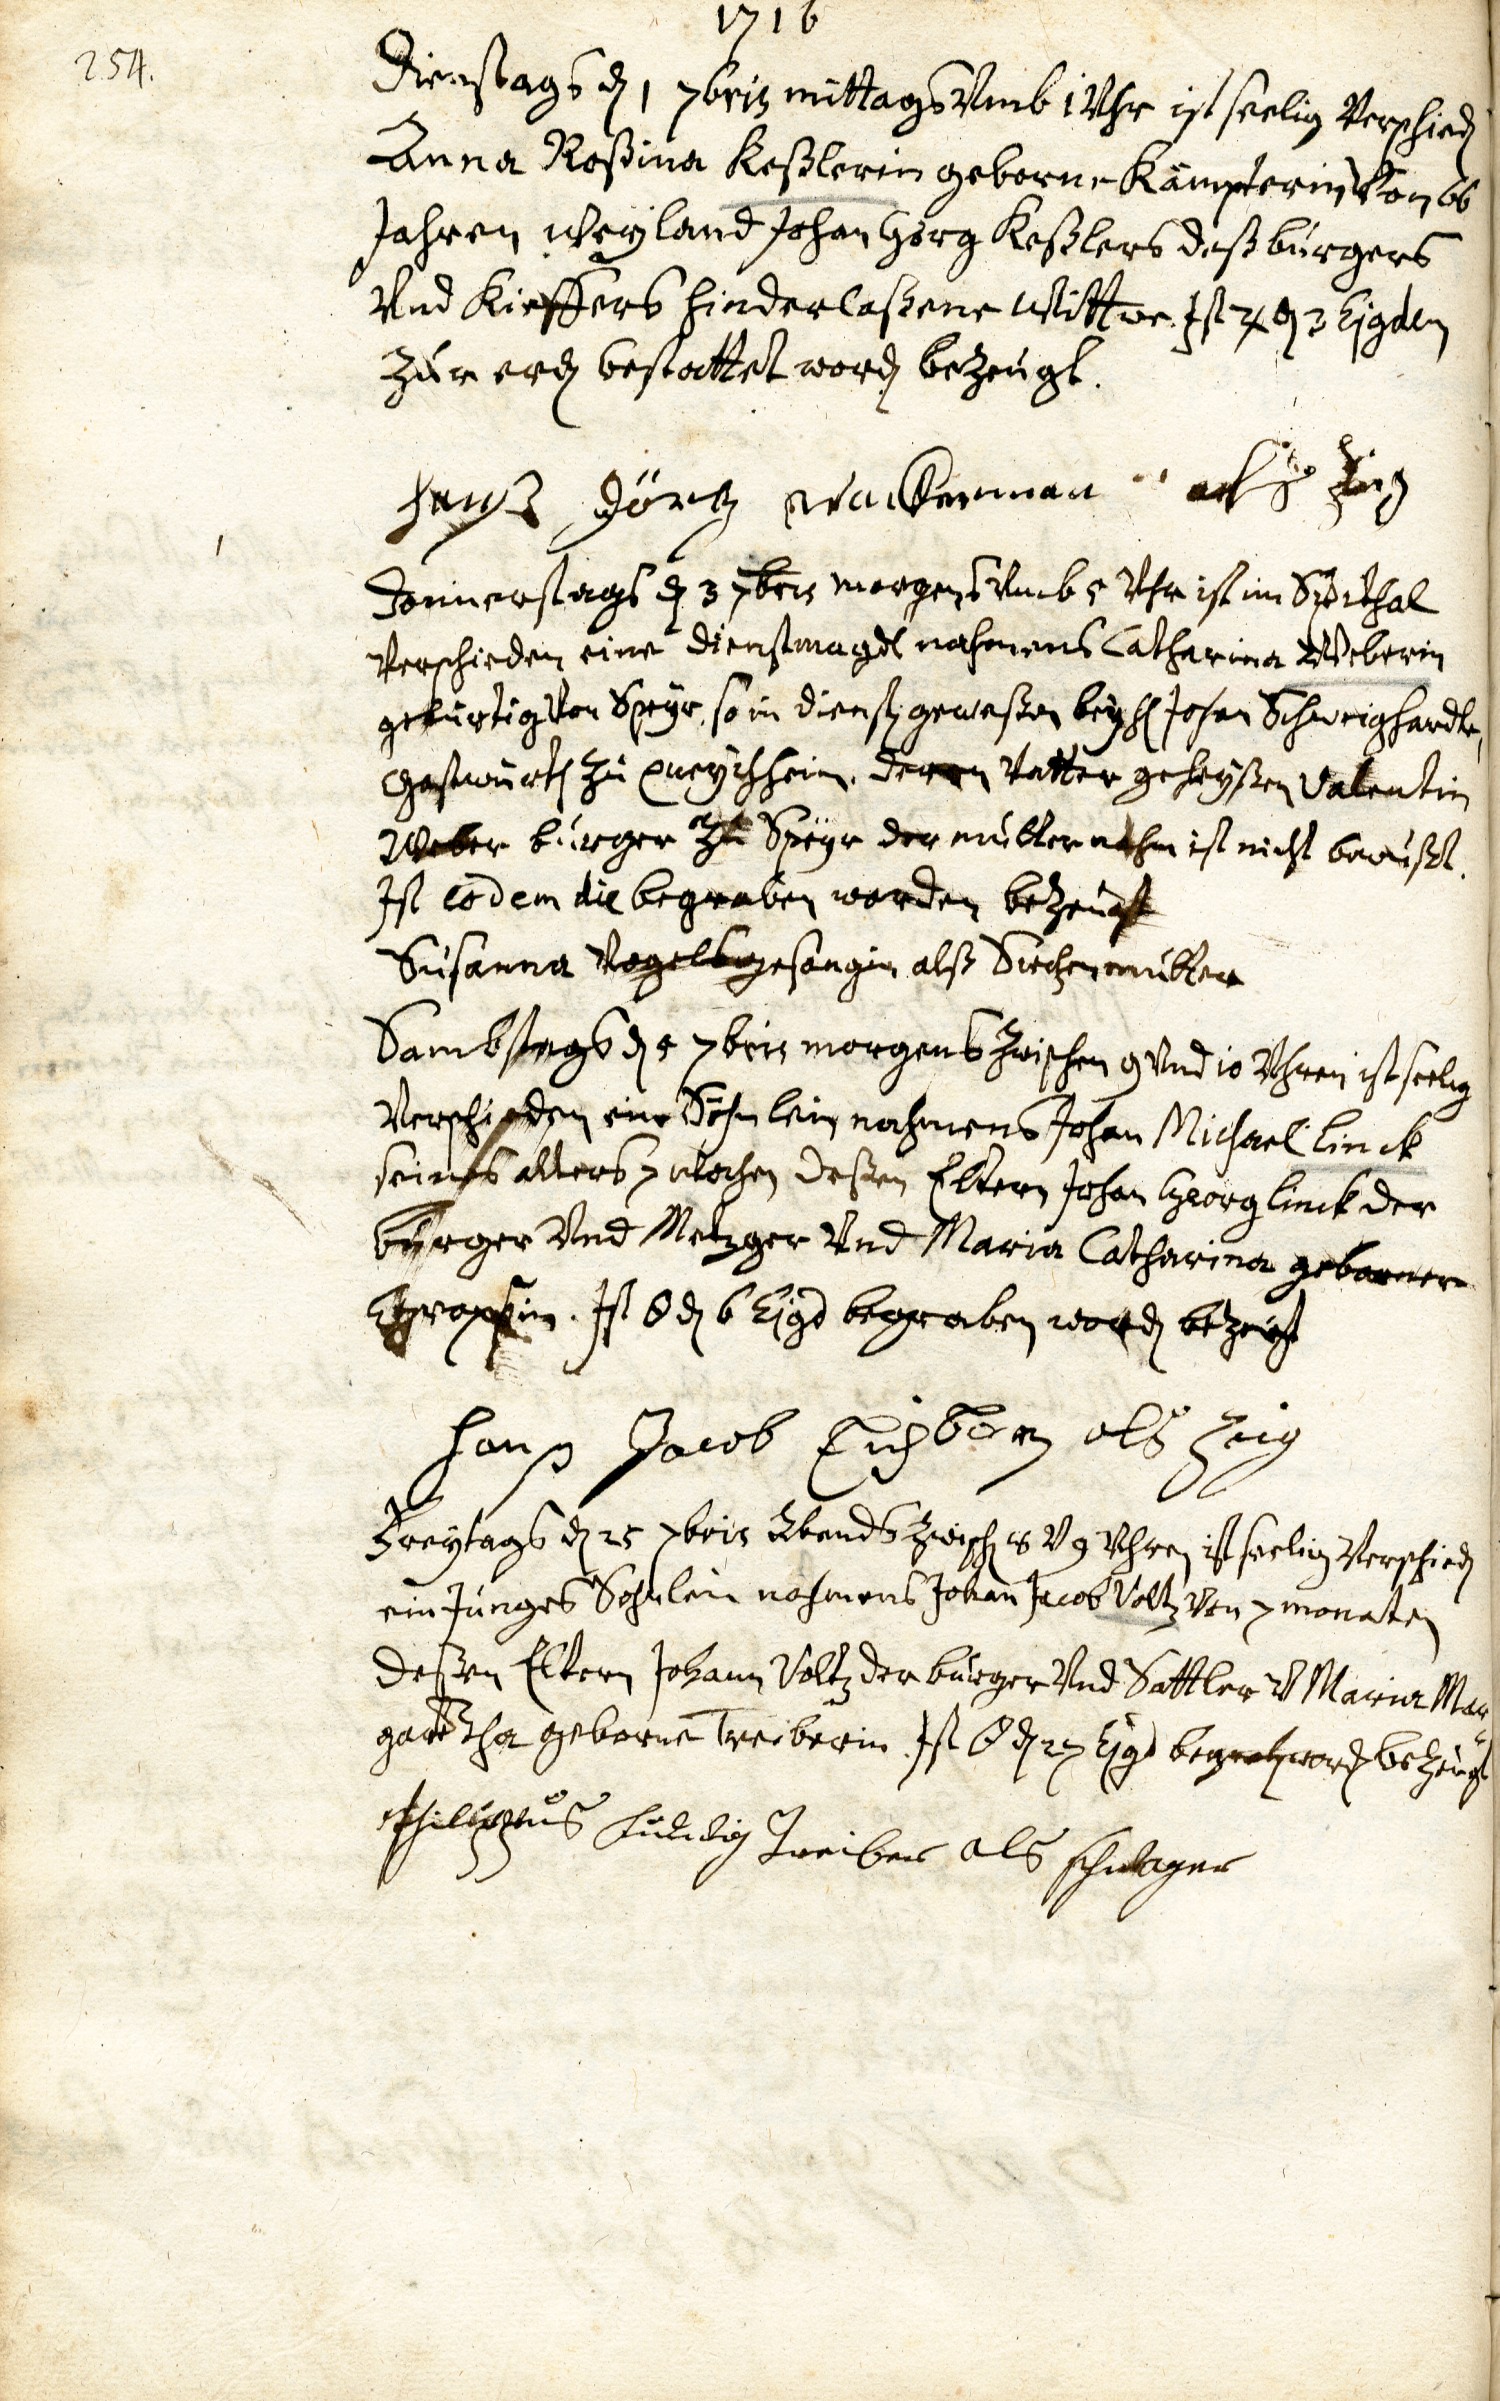 1716
254.
Dienstags d 1 7bris mittags Vmb 1 Vhr ist seelig Verschied
Anna Roßina Keßlerin geborne Kämpterin Von 66
Jahren Weyland Johan Görg Keßlers deß bürgers
Vnd Kieffers hinderlaßene Wittwe. Ist ♃ d 3 Ejgdem
zür erd bestattet word bezeügt.
Hanß Jörg Wackerman alß Zeig
Donnerstags d 3 7bris morgens Vmb 5 Vhr ist im Spithal
Verschieden eine dienstmagdt nahmens Catharina Weberin
gebürtig Von Speyr, so in dienst geweßen bey H Johan Schweighardt,
Gastwürth zu Queychheim. deren Vatter geheyßen Valentin
Weber bürger zu Speyr der mutter nahm ist nicht bewußt.
Ist eodem die begraben worden bezeügt
Susanna Vogelsgesangin alß Siechenmutter
Sambstags d 5 7bris morgens zwischen 9 Vnd 10 Vhren ist seelig
Verschieden ein Söhnlein nahmens Johan Michael Linck
seines alters 7 wochen deßen Eltern Johan Georg Linck der
bürger Vnd Metzger Vnd Maria Catharina geborner
Ist d 6 Ejgd begraben word bezeügt
Hanß Jacob Eichborn als Zeig
Freytags d 25 7bris Abends zwisch 8 V 9 Vhren ist seelig Verschied
ein Junges Söhnlein nahmens Johan Jacob Voltz Von 7 monaten
deßen Eltern Johann Voltz der bürger Vnd Sattler V Maria Mar
garetha geborne Treiberin. Ist d 27 Ejgd begrab word bezeügt
Philippus Ludwig Treiber als schwager